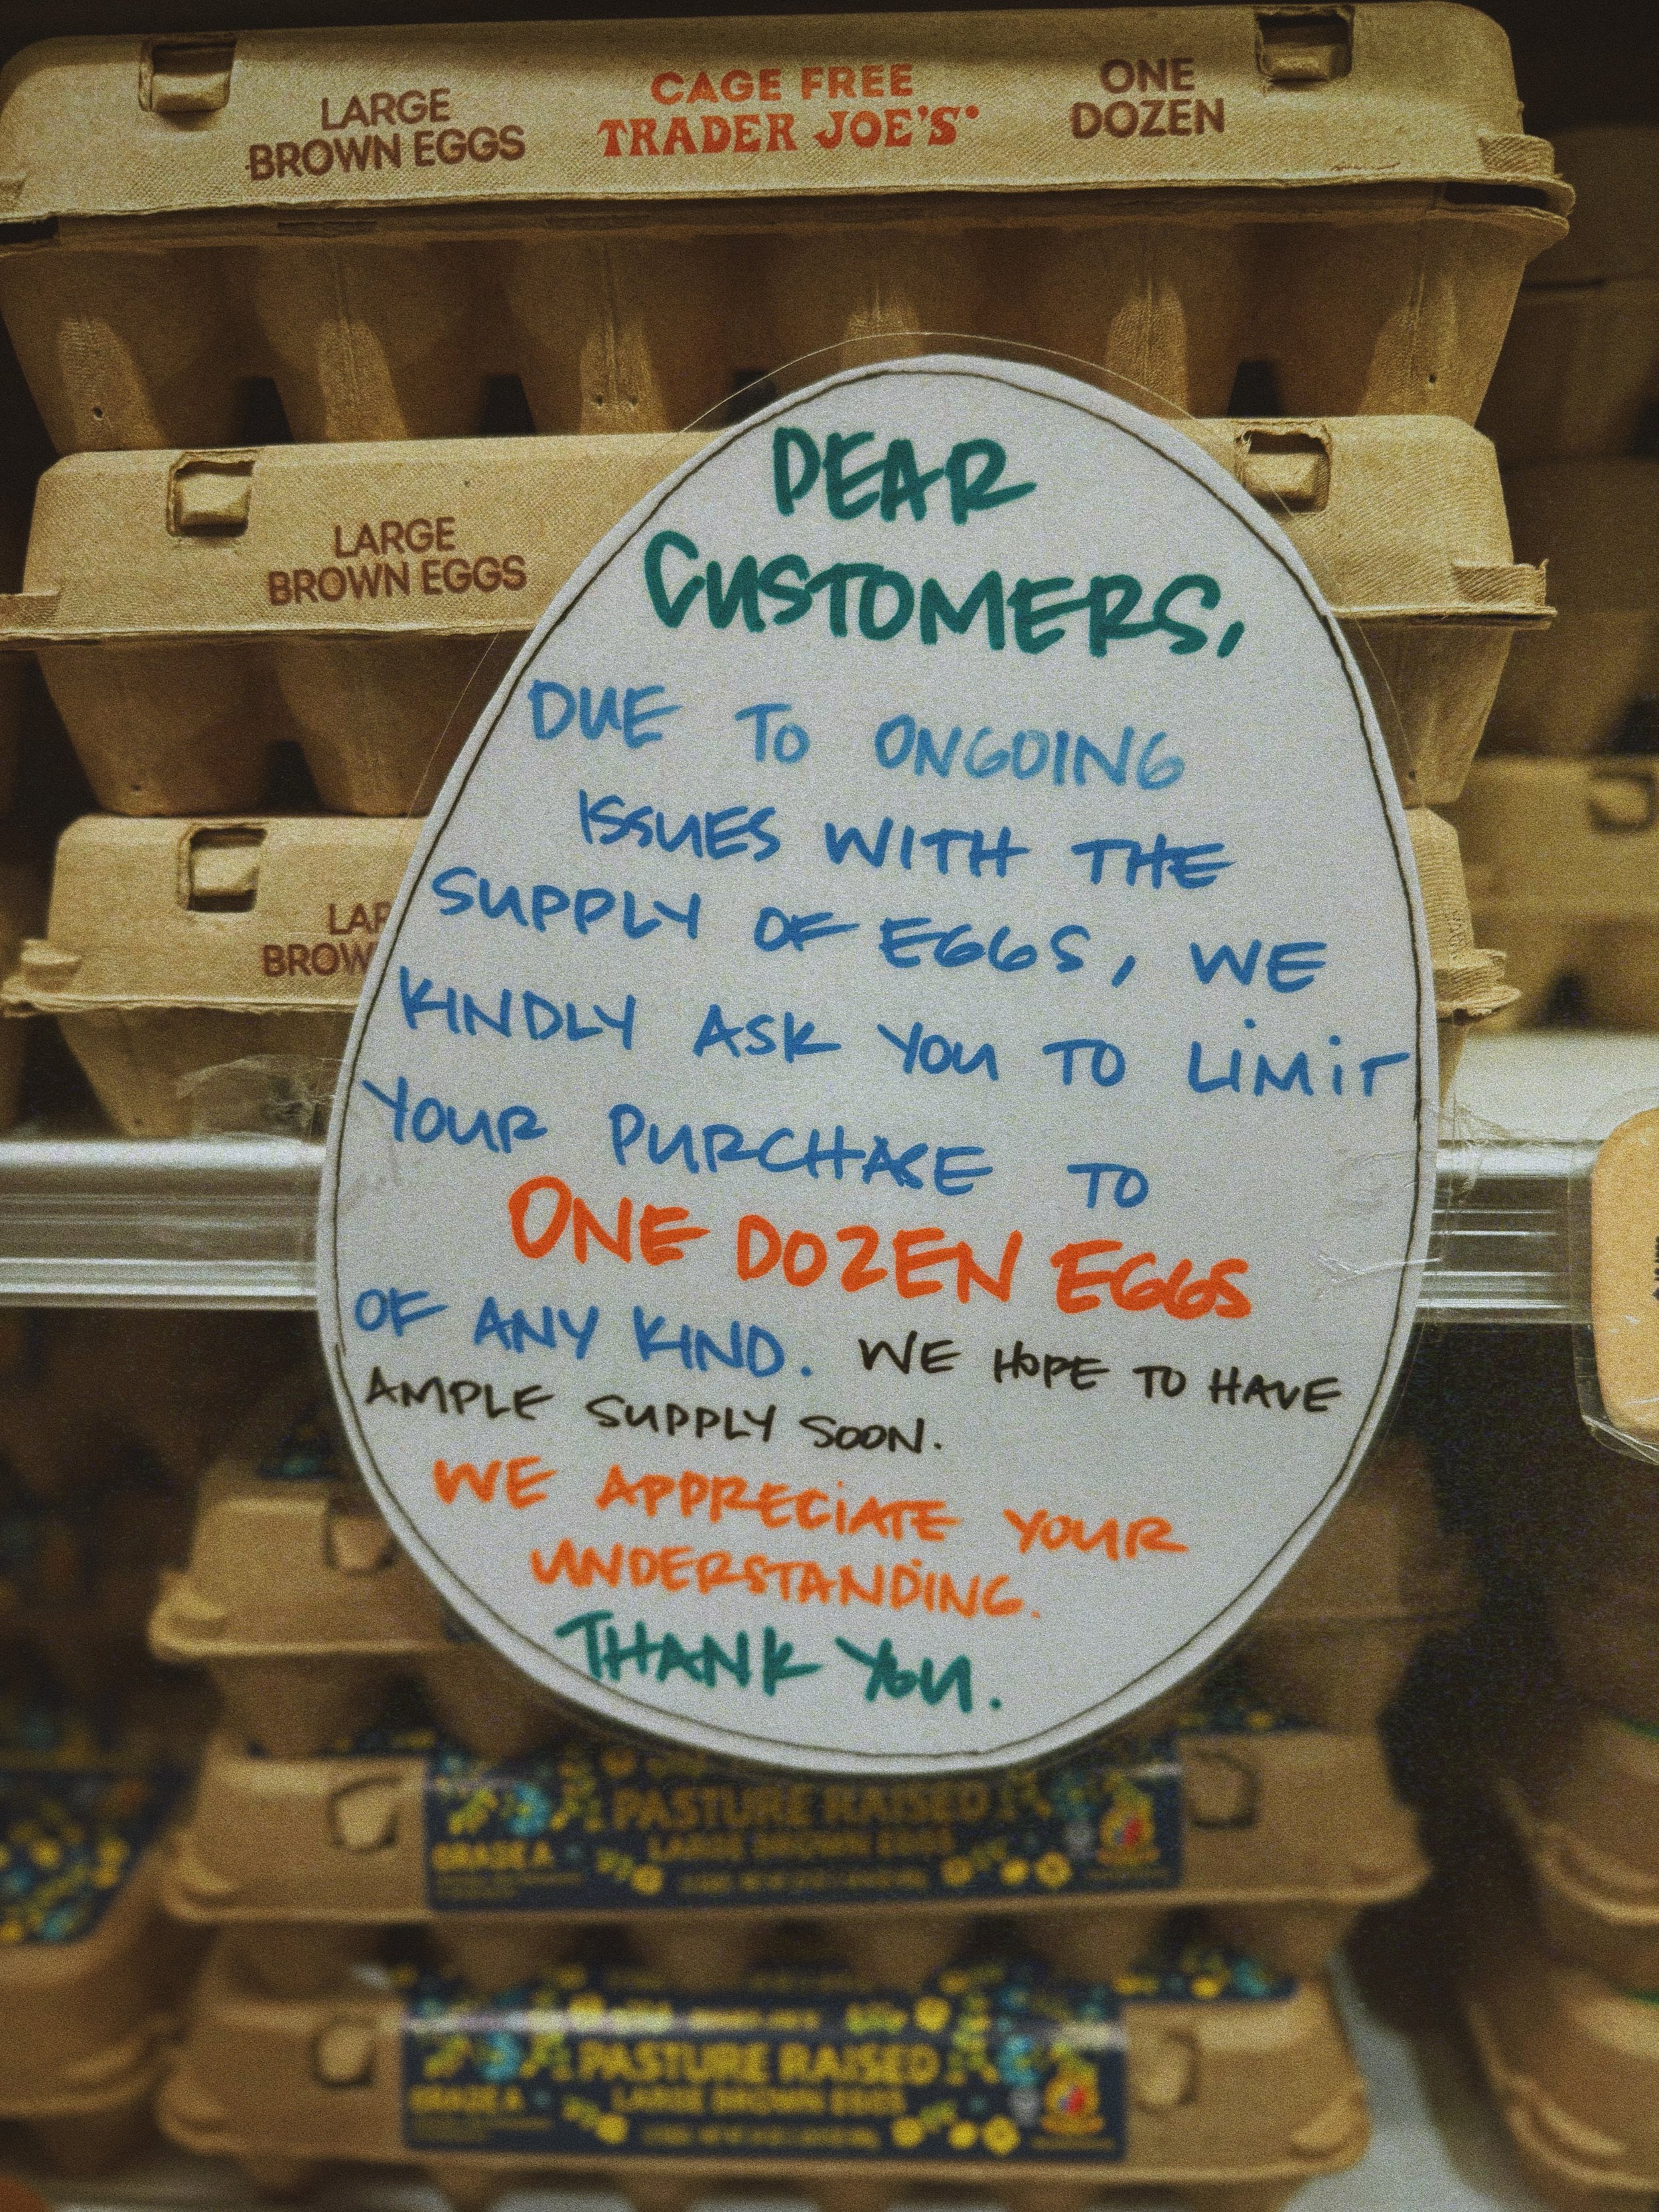 LARGE
BROWN EGGS
CAGE FREE
TRADER JOE'S
ONE
DOZEN
LARGE
BROWN EGGS
LAR
BROW
DEAR
CUSTOMERS,
DUE TO ONGOING
ISSUES WITH THE
SUPPLY OF EGGS, WE
KINDLY ASK YOU TO LIMIT
YOUR PURCHASE TO
ONE DOZEN EGGS
OF ANY KIND. WE HOPE TO HAVE
AMPLE SUPPLY SOON.
WE APPRECIATE YOUR
UNDERSTANDING.
THANK YOU.
PASTURE RAISED
LARGE BROWN EGGS
GRADE A
PASTURE RAISED
LARGE BROWN EGGS
GRADE A